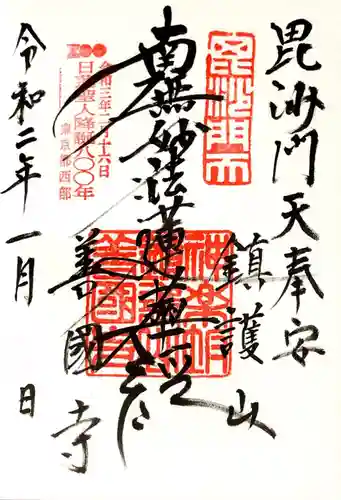 毘沙門天奉安
鎮護山
毘沙門天
南無妙法蓮華経
善國寺
令和三年二月十六日
日蓮聖人降誕八〇〇年
東京都西部
令和二年一月 日